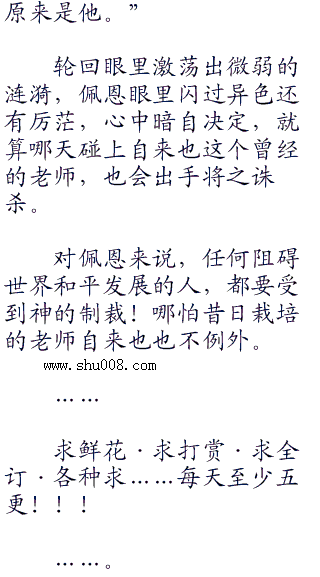 原来是他。”
轮回眼里激荡出微弱的
涟漪，佩恩眼里闪过异色还
有厉茫，心中暗自决定，就
算哪天碰上自来也这个曾经
的老师，也会出手将之诛
杀。
对佩恩来说，任何阻碍
世界和平发展的人，都要受
到神的制裁！哪怕昔日栽培
的老师自来也也不例外。
www.shu008.com
……
求鲜花·求打赏·求全
订·各种求……每天至少五
更！！！
……。